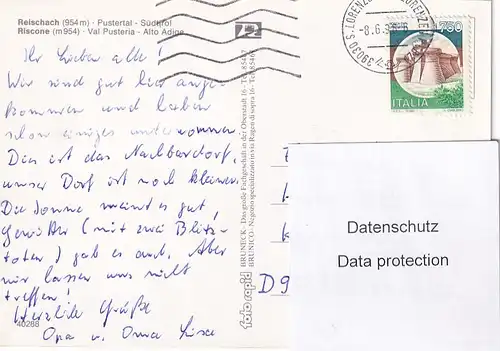 Reischach (954 m) · Pustertal · Südtirol
Riscone (m 954) · Val Pusteria · Alto Adige
Ihr Lieben alle!
Wir sind gut hier ange-
kommen und haben
schon einiges unternommen.
Das ist das Nachbardorf,
unser Dorf ist noch kleiner.
Die Sonne meint es gut,
Gewitter (mit zwei Blitz-
toten) gab es auch. Aber
wir lassen uns nicht
treffen!
Herzliche Grüße
Opa u. Oma
40268
foto rapid
BRUNECK - Das große Fachgeschäft in der Oberstadt 16 - Tel. 85447
BRUNICO - Negozio specializzato in via Ragen di sopra 16 - Tel. 85447
39030 S. LORENZO
-8.6.9
750
ITALIA
D 9
Datenschutz
Data protection